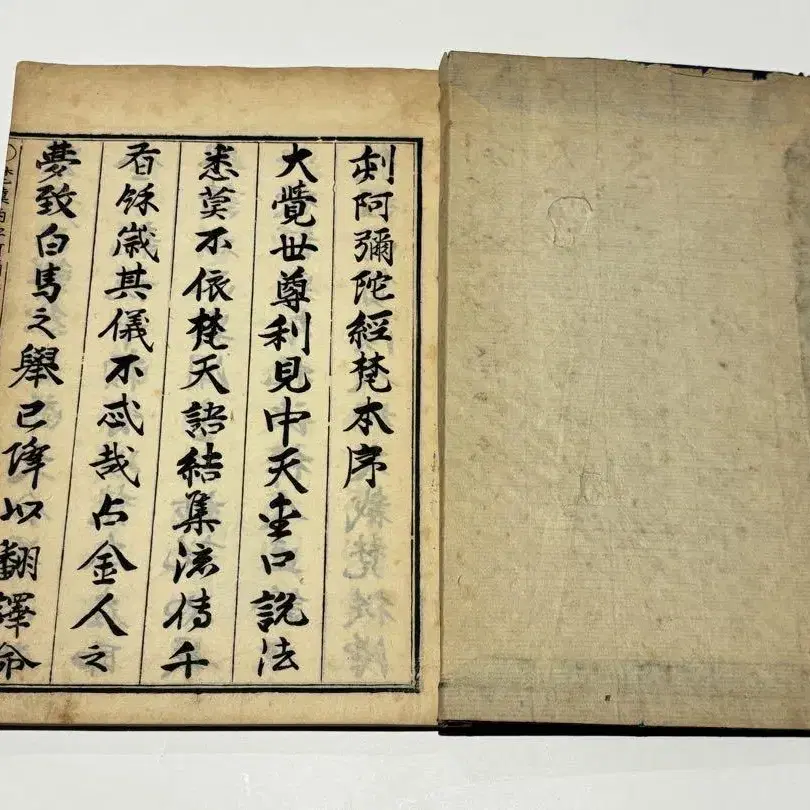 刻阿彌陀經梵本序
大覺世尊利見中天金口說法
悉莫不依梵天語結集流傳千
百餘歲其儀不忒哉占金人之
夢致白馬之舉已降以翻譯命